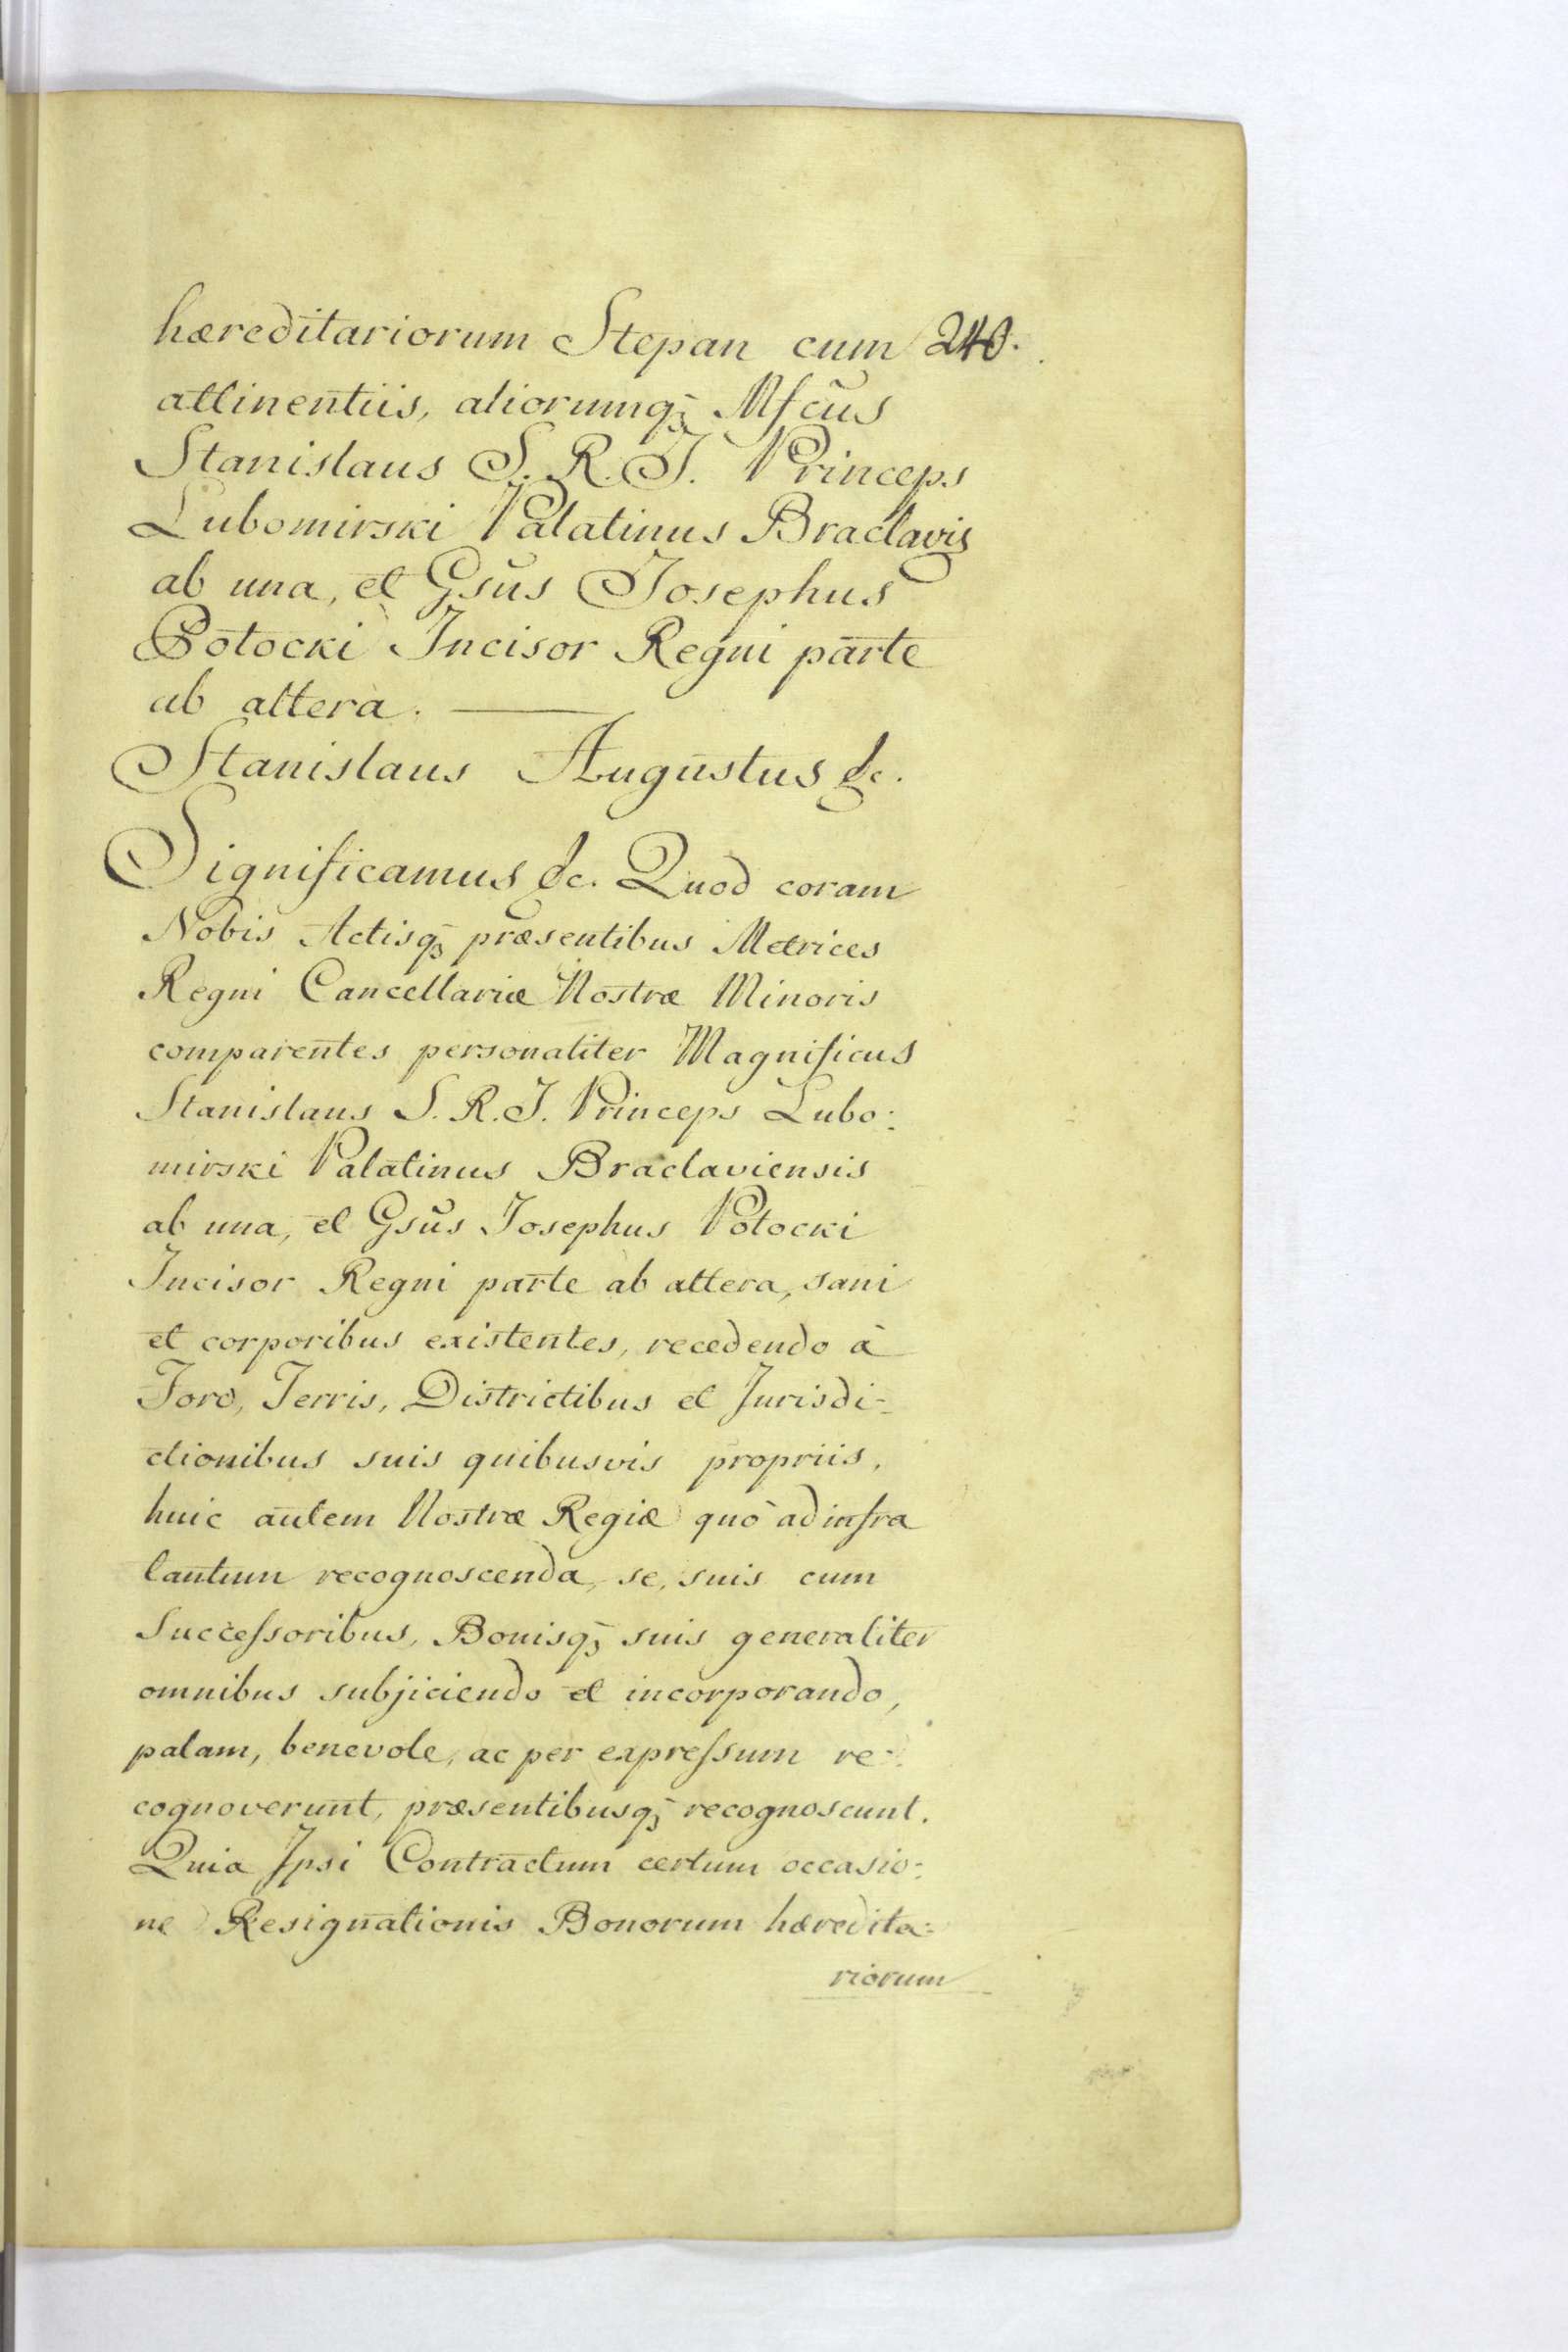 hæreditariorum Stepan cum 240.
attinentiis, aliorumq̃ꝫ Mfcũs
Stanislaus S. R. I. Princeps
Lubomirski Palatinus Braclavis
ab una, et Gsũs Josephus
Potocki Incisor Regni parte
ab altera.
Stanislaus Augustus &c.
Significamus &c. Quod coram
Nobis Actisq̃ꝫ præsentibus Metrices
Regni Cancellariæ Nostræ Minoris
comparentes personaliter Magnificus
Stanislaus S. R. I. Princeps Lubo:
mirski Palatinus Braclaviensis
ab una, et Gsũs Josephus Potocki
Incisor Regni parte ab altera, sani
et corporibus existentes, recedendo à
Foro, Terris, Districtibus et Jurisdi-
ctionibus suis quibusvis propriis,
huic autem Nostræ Regiæ quò ad infra
tantum recognoscenda, se, suis cum
Successoribus, Bonisq̃ꝫ suis generaliter
omnibus subjiciendo et incorporando,
palam, benevole, ac per expressum re-
cognoverunt, præsentibusq̃ꝫ recognoscunt.
Quia Ipsi Contractum certum occasio:
ne Resignationis Bonorum hæredita:
riorum